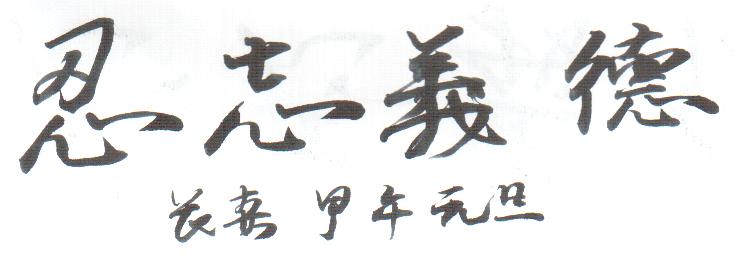 忍 志 義 德
甲午元旦